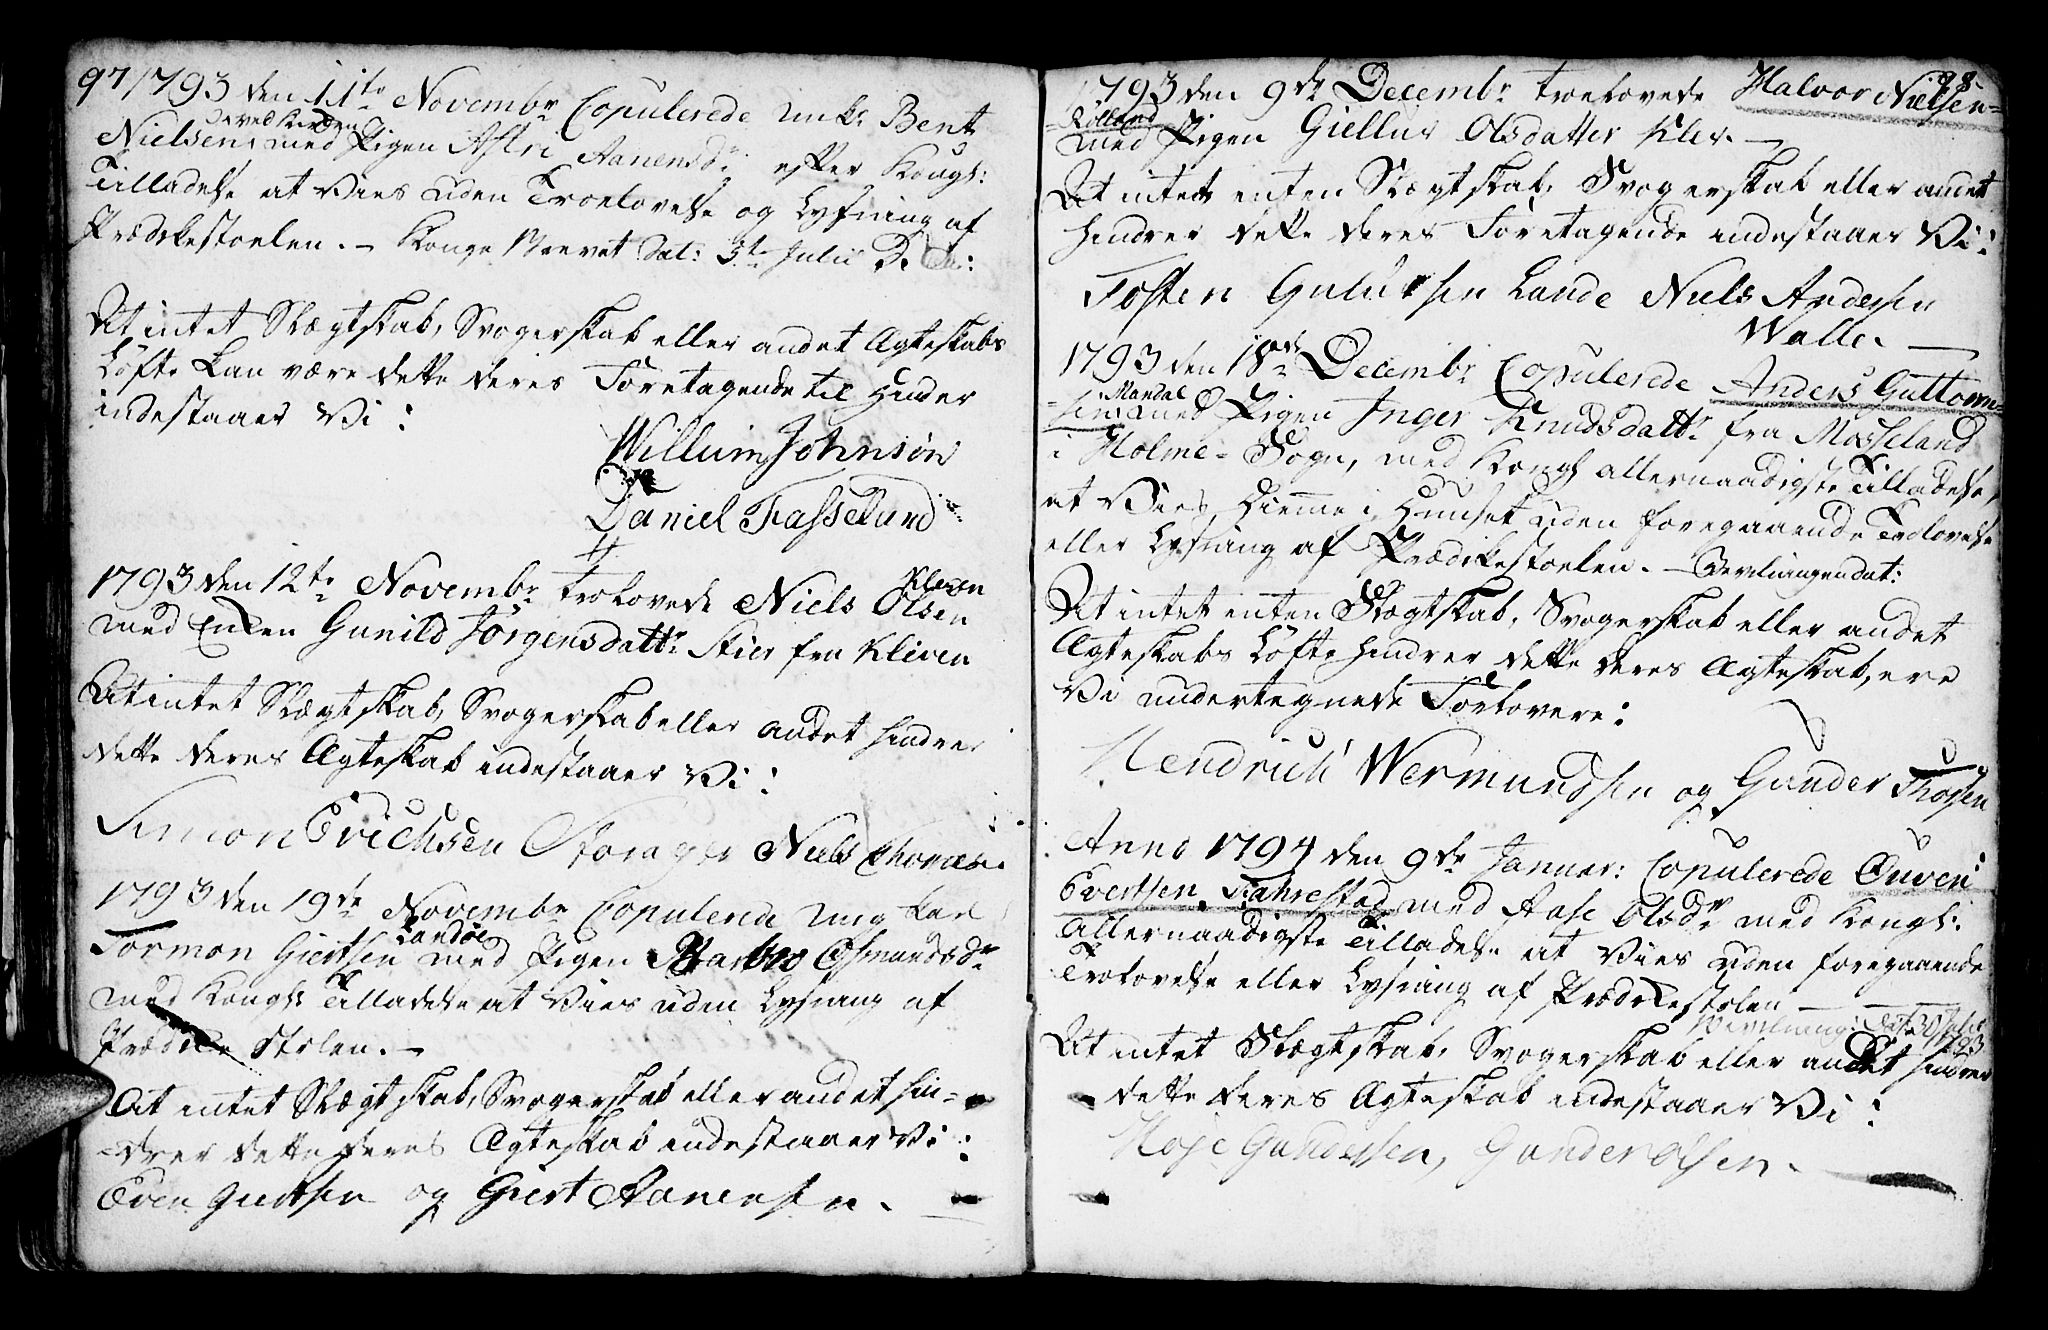 97
1793 den 11te Novembr Copulerede Unke: Bent
ved Kirken
Nielsen, med Pigen Astri Aanensdr efter Kongl:
Tilladelse at Vies uden Troelovelse og Lysning af
Prædikestoelen. – Konge Brevet Dat: 3te Julii
At intet Slægtskab, Svogerskab eller andet Ægteskabs
Løfte kan være dette deres Foretagende til Hinder
indestaaer Vi:
Willum Johnsøn
Daniel Fasseland
1793 den 12te Novembr trolovede Niels Olsen
Kleven
med Enken Gunild Jørgensdattr Stier fra Kleven
At intet Slægtskab, Svogerskab eller andet hindrer
dette deres Ægteskab indestaaer Vi:
Simon Erichsen Storager Niels Thomas:
1793 den 19de Novembr Copulerede ung Karl
Landøe
Tormon Giertsen med Pigen Osmundsdr
med Kongl: Tilladelse at Vies uden Lysning af
Prædike Stolen. –
At intet Slægtskab, Svogerskab eller andet hin-
drer dette deres Ægteskab indestaaer Vi:
Even Giertsen og Giert Aanensen.
98
1793 den 9de Decembr troelovede Halvor Nielsen
Rolland
med Pigen Giellur Olsdatter Klev. –
At intet enten Slægtskab, Svogerskab eller andet
hindrer dette deres Foretagende indestaaer Vi:
Tosten Gulufsen Lande Niels Andersen
Walle. –
1793 den 18de Decembr Copulerede Anders Guttorm-
Mandal
sen med Pigen Inger Knudsdattr fra Mosseland
i Holme Sogn, med Kongl allernaadigste Tilladelse,
at Vies hiemme i Huuset uden foregaaende Trolovelse
eller Lysning af Prædikestoelen. – Bevilningen dat:
At intet enten Slægtskab, Svogerskab eller andet
Ægteskabs Løfte hindrer dette deres Ægteskab, ere
Vi undertegnede Forlovere:
Hendrich Wermundsen og Gunder Thorsen
Anno 1794 den 9de Januar: Copulerede Ouven
Evertsen Fahrestad med Aase Olsdr med Kongl:
Allernaadigste Tilladelse at Vies uden foregaaende
Trolovelse eller Lysning af Prædikestolen –
Bevilning: Dat: Julii 1793
At intet Slægtskab, Svogerskab eller andet hindrer
dette deres Ægteskab indestaaer Vi:
Gundersen, Gunder Olsen.